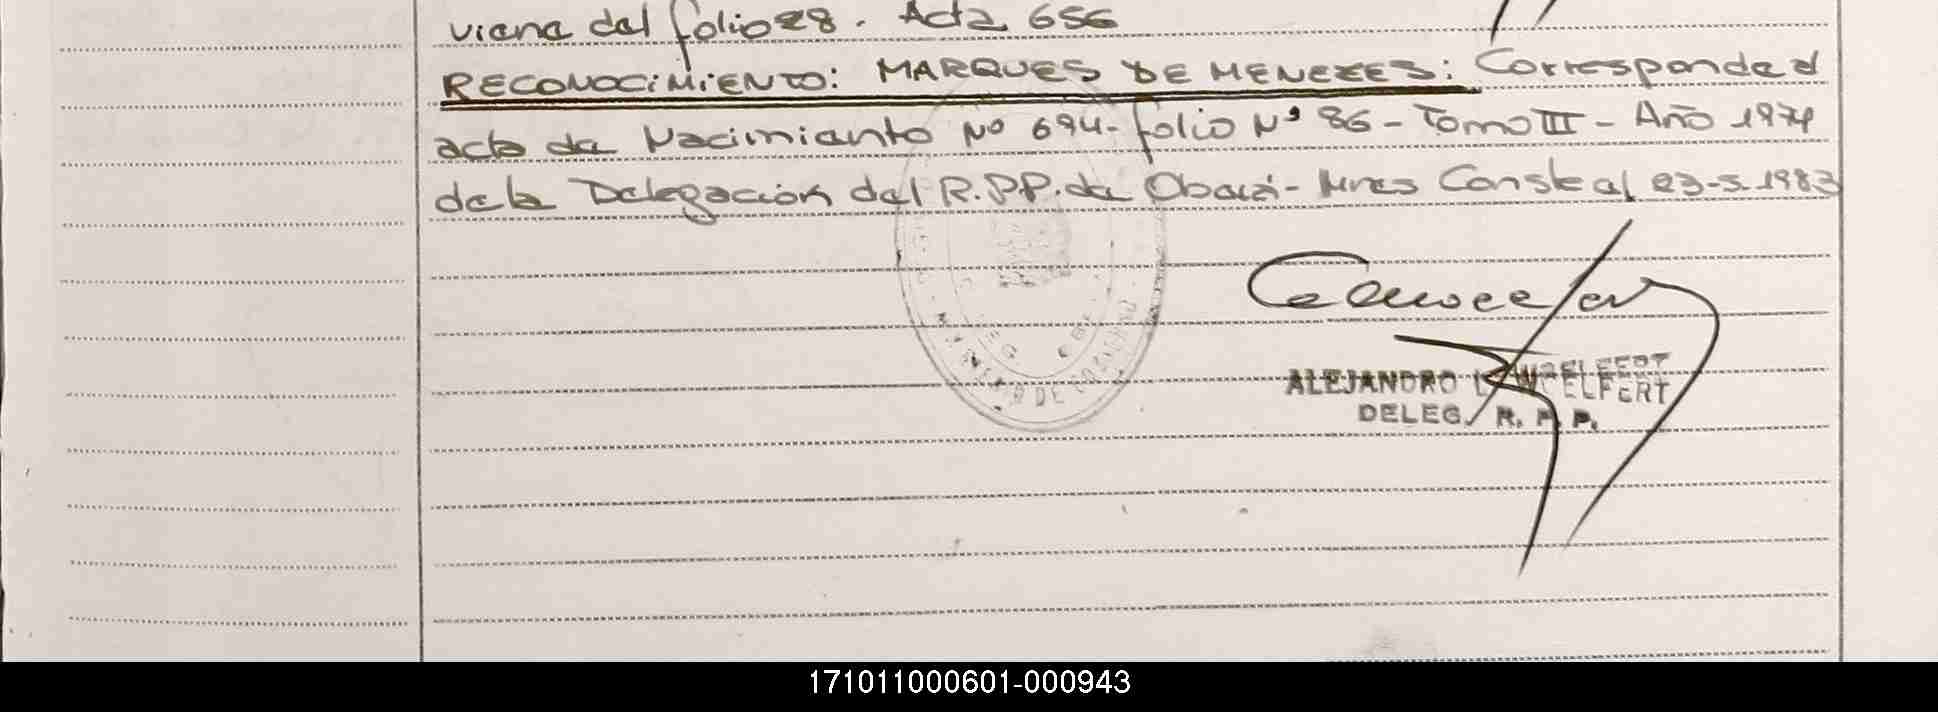 viene del folio 28. Acta 656
RECONOCIMIENTO: MARQUES DE MENEZES: Corresponde al
acta de Nacimiento Nº 694- folio Nº 86 - Tomo III - Año 1974
de la Delegación del R.P.P. de Oberá - Mnes Conste al 23-5-1983
ALEJANDRO
DELEG. R. P. P.
171011000601-000943